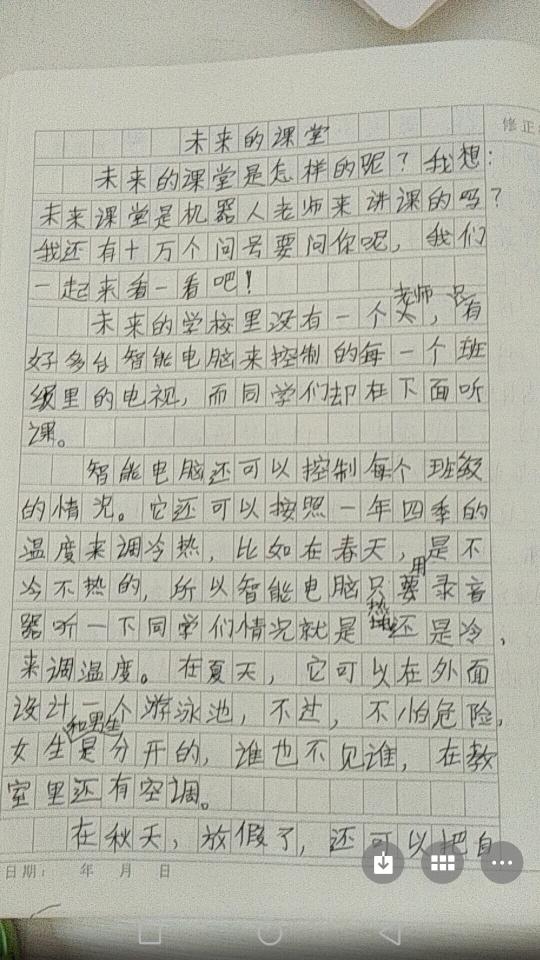 修正
未来的课堂
未来的课堂是怎样的呢？我想：
未来课堂是机器人老师来讲课的吗？
我还有十万个问号要问你呢，我们
一起来看一看吧！
未来的学校里没有一个老师，只有
好多台智能电脑来控制的每一个班
级里的电视，而同学们却在下面听
课。
智能电脑还可以控制每个班级
的情况。它还可以按照一年四季的
温度来调冷热，比如在春天，是不
冷不热的，所以智能电脑只要用录音
器听一下同学们情况就是热还是冷，
来调温度。在夏天，它可以在外面
设计一个游泳池，不过，不怕危险，
女生和男生是分开的，谁也不见谁，在教
室里还有空调。
在秋天，放假了，还可以把自
日期： 年 月 日